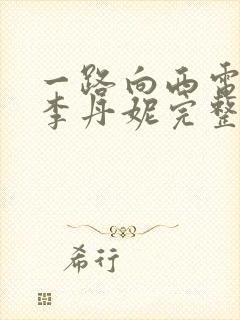 一路向西雷
李丹妮完整
希行